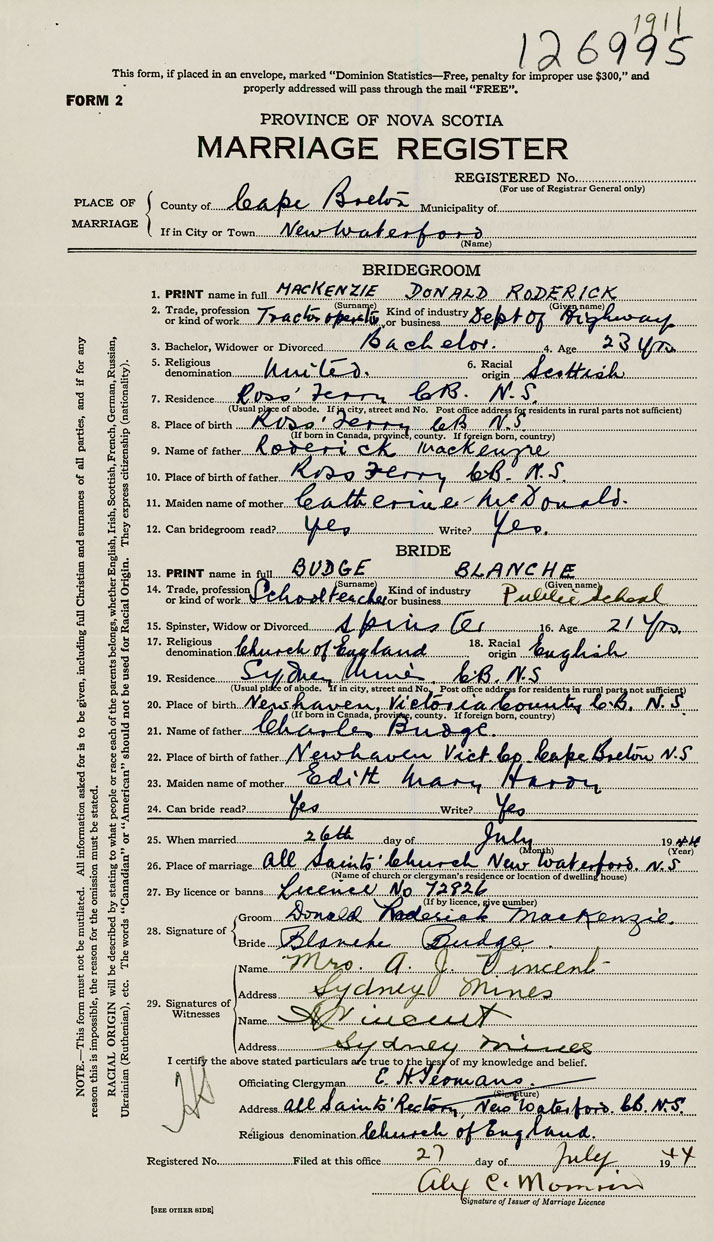 1911
126995
This form, if placed in an envelope, marked "Dominion Statistics—Free, penalty for improper use $300," and
properly addressed will pass through the mail "FREE".
FORM 2
PROVINCE OF NOVA SCOTIA
MARRIAGE REGISTER
REGISTERED No.
(For use of Registrar General only)
PLACE OF MARRIAGE
County of Cape Breton Municipality of
If in City or Town New Waterford
(Name)
BRIDEGROOM
1. PRINT name in full MACKENZIE DONALD RODERICK
(Surname) (Given name)
2. Trade, profession or kind of work Tractor operator Kind of industry or business Dept of Highway
3. Bachelor, Widower or Divorced Bachelor. 4. Age 23 Yrs
5. Religious denomination United. 6. Racial origin Scottish
7. Residence Ross' Ferry CB. N.S.
(Usual place of abode. If in city, street and No. Post office address for residents in rural parts not sufficient)
8. Place of birth Ross' Ferry CB N.S.
(If born in Canada, province, county. If foreign born, country)
9. Name of father Roderick MacKenzie
10. Place of birth of father Ross Ferry CB. N.S.
11. Maiden name of mother Catherine McDonald.
12. Can bridegroom read? Yes Write? Yes.
BRIDE
13. PRINT name in full BUDGE BLANCHE
(Surname) (Given name)
14. Trade, profession or kind of work Schoolteacher Kind of industry or business Public School
15. Spinster, Widow or Divorced Spinster 16. Age 21 Yrs.
17. Religious denomination Church of England 18. Racial origin English
19. Residence Sydney Mines C.B. N.S
(Usual place of abode. If in city, street and No. Post office address for residents in rural parts not sufficient)
20. Place of birth Newhaven, Victoria County C.B. N.S
(If born in Canada, province, county. If foreign born, country)
21. Name of father Charles Budge.
22. Place of birth of father Newhaven Vict Co. Cape Breton N.S
23. Maiden name of mother Edith Mary Hardy
24. Can bride read? Yes Write? Yes
25. When married 26th day of July 1944
(Month) (Year)
26. Place of marriage All Saints' Church New Waterford. N.S
(Name of church or clergyman's residence or location of dwelling house)
27. By licence or banns Licence No 72926
(If by licence, give number)
28. Signature of
Groom Donald Roderick MacKenzie.
Bride Blanche Budge.
29. Signatures of Witnesses
Name Mrs. A. J. Vincent
Address Sydney Mines
Name Vincent
Address Sydney Mines
I certify the above stated particulars are true to the best of my knowledge and belief.
Officiating Clergyman E. H. Yeomans.
(Signature)
Address All Saints' Rectory, New Waterford. CB. N.S.
Religious denomination Church of England.
Registered No. Filed at this office 27 day of July 1944
Alex C.
Signature of Issuer of Marriage Licence
[SEE OTHER SIDE]
NOTE.—This form must not be mutilated. All information asked for is to be given, including full Christian and surnames of all parties, and if for any
reason this is impossible, the reason for the omission must be stated.
RACIAL ORIGIN will be described by stating to what people or race each of the parents belongs, whether English, Irish, Scottish, French, German, Russian,
Ukrainian (Ruthenian), etc. The words "Canadian" or "American" should not be used for Racial Origin. They express citizenship (nationality).